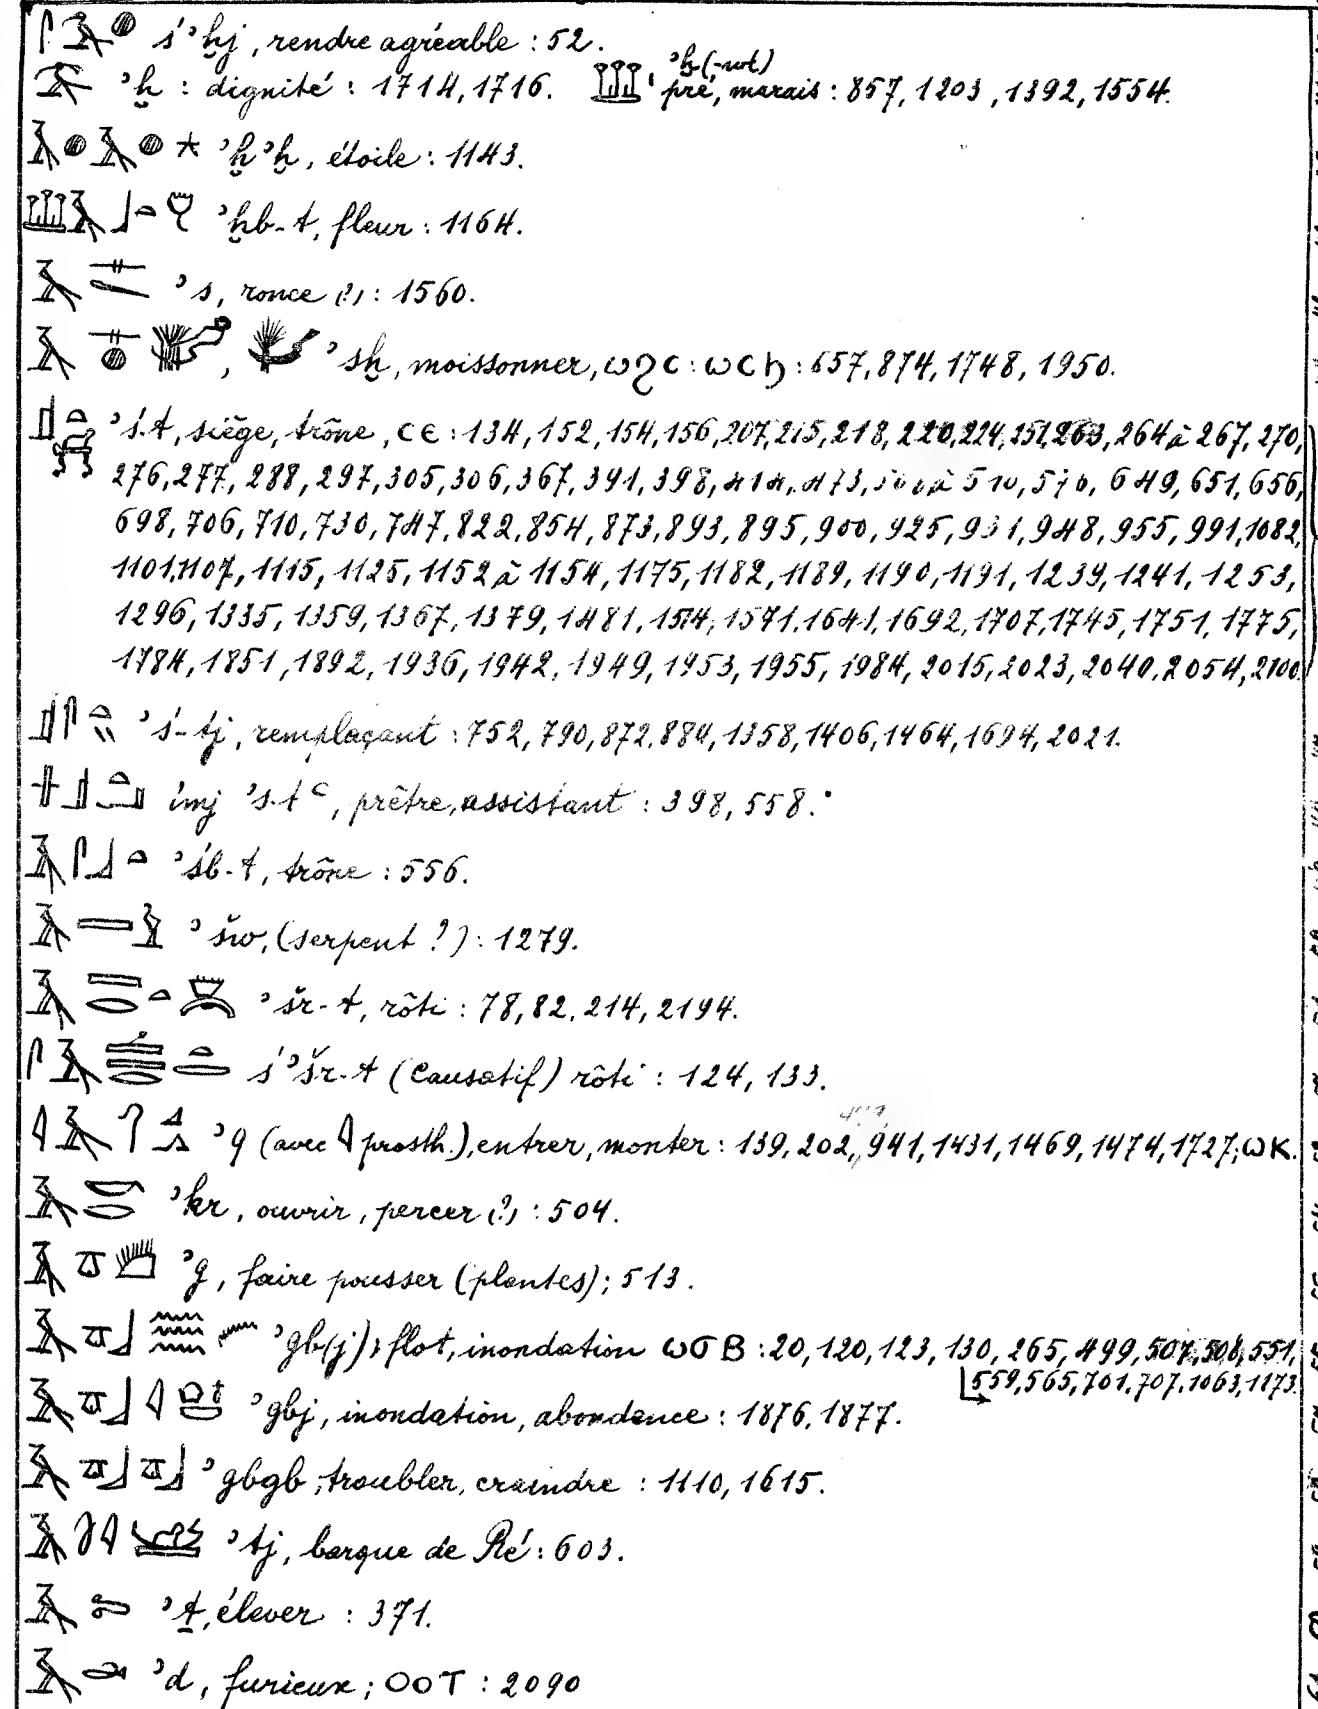 ś ꜣḫj, rendre agréable : 52.
ꜣḫ : dignité : 1714, 1716. ꜣḫ(-wt) pré, marais : 857, 1203, 1392, 1554.
ꜣḫꜣḫ, étoile : 1143.
ꜣḫb-t, fleur : 1164.
ꜣs, ronce (?) : 1560.
ꜣsḫ, moissonner, ⲱϩⲥ : ⲱⲥϧ : 657, 874, 1748, 1950.
ꜣś.t, siège, trône, ⲥⲉ : 134, 152, 154, 156, 207, 215, 218, 220, 224, 251, 263, 264 à 267, 270,
276, 277, 288, 297, 305, 306, 367, 391, 398, 473, 649, 651, 656,
698, 706, 710, 730, 747, 822, 854, 873, 893, 895, 900, 925, 931, 948, 955, 991, 1082,
1101, 1107, 1115, 1125, 1152 à 1154, 1175, 1182, 1189, 1190, 1191, 1239, 1241, 1253,
1296, 1335, 1359, 1367, 1379, 1481, 1514, 1571, 1641, 1692, 1707, 1745, 1751, 1775,
1784, 1851, 1892, 1936, 1942, 1949, 1953, 1955, 1984, 2015, 2023, 2040, 2054, 2100.
ꜣś-tj, remplaçant : 752, 790, 872, 884, 1358, 1406, 1464, 1694, 2021.
imj ꜣs.t ꜥ, prêtre, assistant : 398, 558.
ꜣśb-t, trône : 556.
ꜣšw, (serpent ?) : 1279.
ꜣšr-t, rôti : 78, 82, 214, 2194.
ś ꜣšr-t (causatif) rôti : 124, 133.
ꜣq (avec 𓇋 prosth.), entrer, monter : 139, 202, 941, 1431, 1469, 1474, 1727; ⲱⲕ.
ꜣkr, ouvrir, percer (?) : 504.
ꜣg, faire pousser (plantes); 513.
ꜣgb(j), flot, inondation ⲱϭⲃ : 20, 120, 123, 130, 265, 499, 507, 508, 551,
559, 565, 701, 707, 1063, 1173.
ꜣgbj, inondation, abondance : 1876, 1877.
ꜣgbgb, troubler, craindre : 1110, 1615.
ꜣtj, barque de Ré : 603.
ꜣṯ, élever : 371.
ꜣd, furieux; ⲟⲟⲧ : 2090